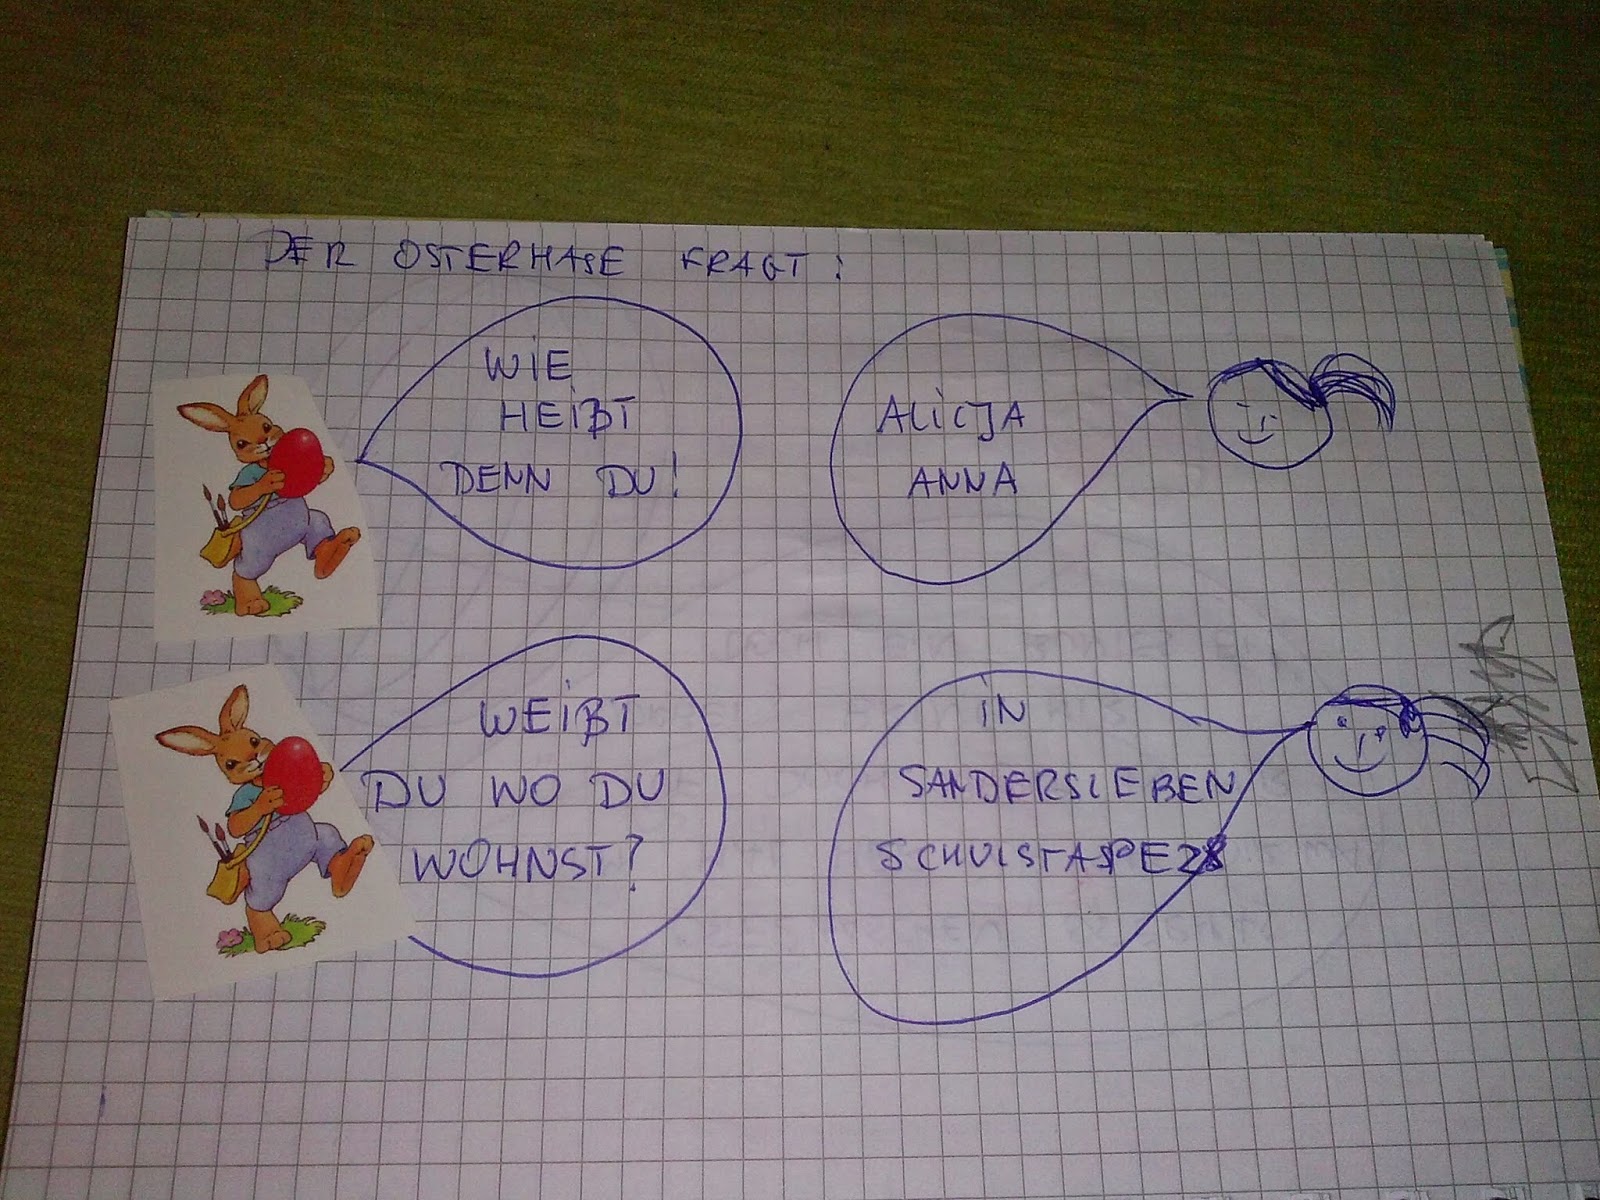 DER OSTERHASE FRAGT:
WiE
HEißT
DENN DU!
ALiCJA
ANNA
WEißT
DU WO DU
WOHNST?
iN
SANDERSLEBEN